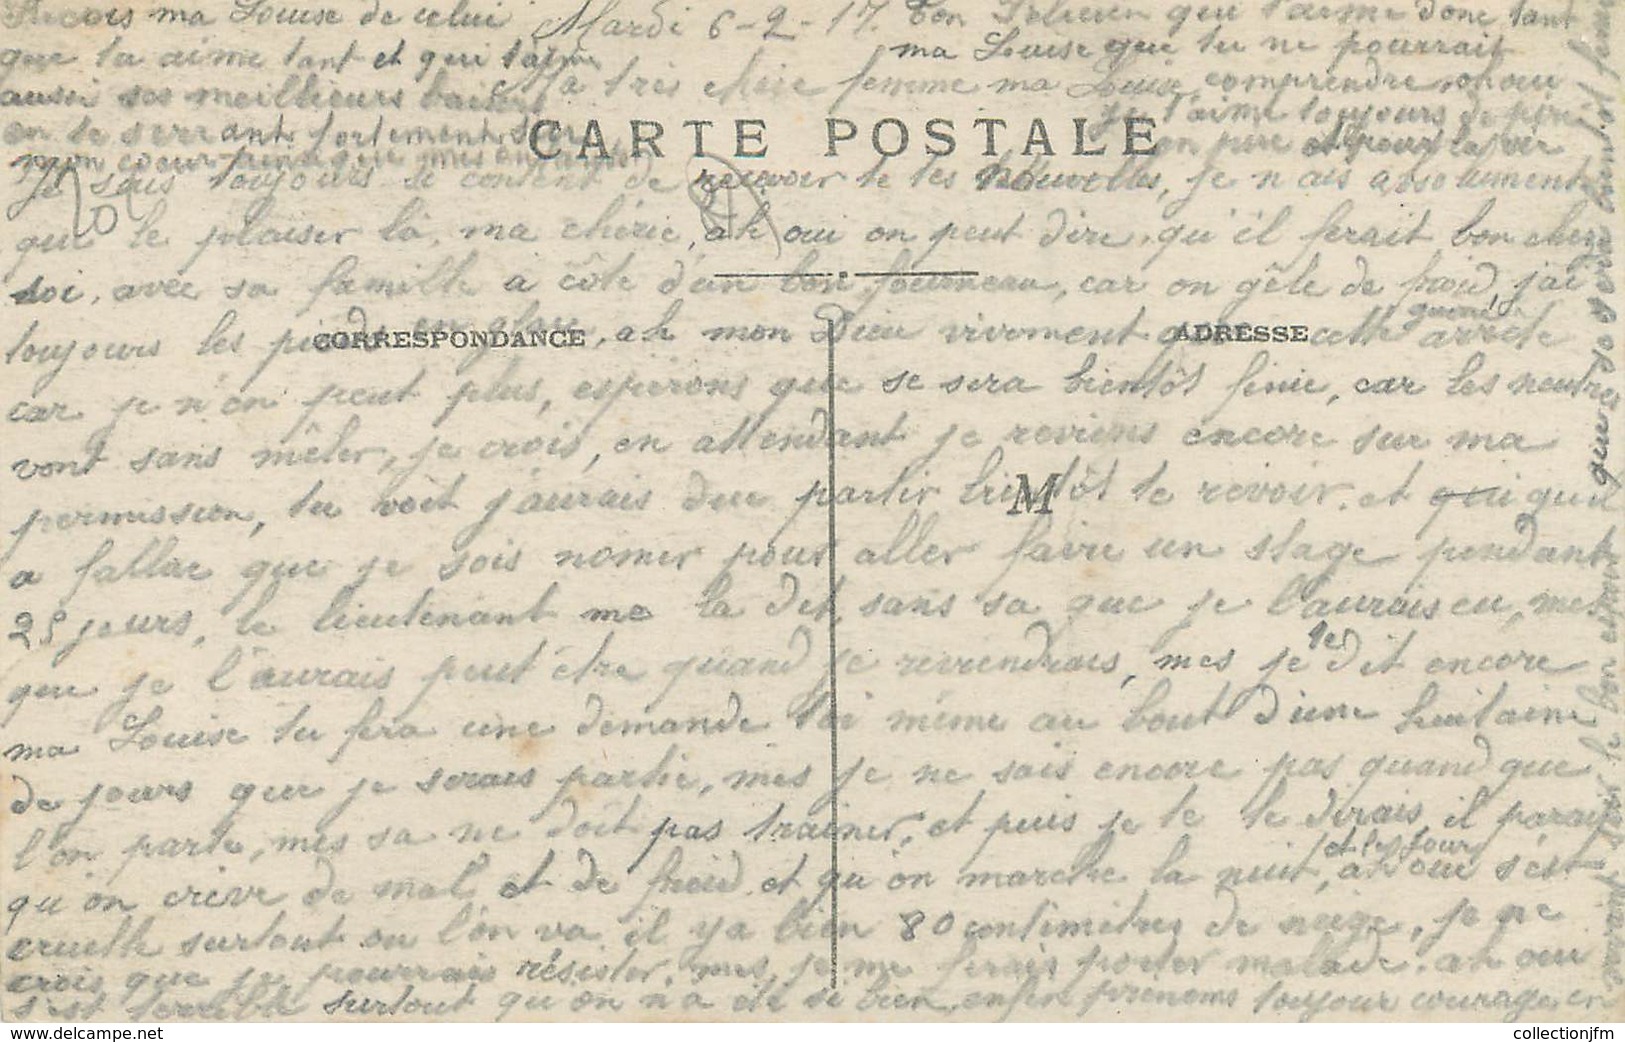 Reçois ma Louise de celui
que tu aime tant et qui t'aime
aussi ses meilleurs baisers
en te serrant fortement sur
mon coeur ainsi que mes enfants
Mardi 6-2-17.
Ton que t'aime donc tant
ma Louise que tu ne pourrait
comprendre oh oui
je t'aime toujours de près
en pire et pour la vie
Ma très chère femme ma Louise
CARTE POSTALE
Je suis toujours si content de recevoir te tes nouvelles, je n'ais absolument
que le plaisir là, ma chérie, ah oui on peut dire, qu'il ferait bon chez
soi, avec sa famille a côté d'un bon fourneau, car on gêle de froid, j'ai
CORRESPONDANCE
ADRESSE
toujours les pieds en glace, ah mon Dieu vivement que cette guerre arrête
car je n'en peut plus, esperons que se sera bientôt finie, car les neutres
vont sans mêler, je crois, en attendant je reviens encore sur ma
M
permission, tu voit j'aurais due partir bientôt te revoir. et qui qu'il
a fallue que je sois nomer pour aller faire un stage pendant
25 jours, le lieutenant me la dit, sans sa que je l'aurais eu, mes
que je l'aurais peut être quand je reviendrais, mes je te dit encore
ma Louise tu fera une demande toi même au bout d'une huitaine
de jours que je serais partie, mes je ne sais encore pas quand que
l'on parte, mes sa ne doit pas trainer, et puis je te le dirais, il parait
qu'on crève de mal et de froid et qu'on marche la nuit, et les jour ah oui s'est
cruelle surtout ou l'on va il y a bien 80 centimètres de neige, je ne
crois que je pourrais résister, mes, je me ferais porter malade. ah oui
s'est terrible surtout qu'on n'a été si bien, enfin prenons toujour courage, en
vivant sur le bon espoir que se sera bientôt finie
www.delcampe.net
collectionjfm